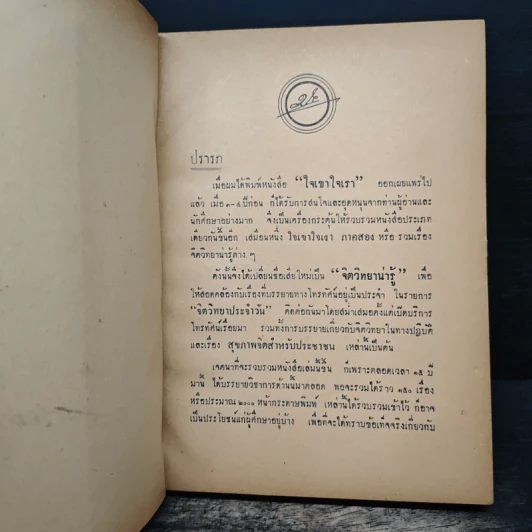 ปรารภ
เมื่อผมได้พิมพ์หนังสือ “ใจเขาใจเรา” ออกเผยแพร่ไป
แล้ว เมื่อ ๓-๔ ปีก่อน ก็ได้รับการสนใจและอุดหนุนจากท่านผู้อ่านและ
นักศึกษาอย่างมาก จึงเป็นเครื่องกระตุ้นให้รวบรวมหนังสือประเภท
เดียวกันขึ้นอีก เสมือนหนึ่ง ใจเขาใจเรา ภาคสอง หรือ รวมเรื่อง
จิตวิทยาน่ารู้ต่าง ๆ
ดังนั้นจึงได้เปลี่ยนชื่อเสียใหม่เป็น “จิตวิทยาน่ารู้” เพื่อ
ให้สอดคล้องกับเรื่องที่บรรยายทางโทรทัศน์อยู่เป็นประจำ ในรายการ
“จิตวิทยาประจำวัน” ติดต่อกันมาโดยสม่ำเสมอตั้งแต่เปิดบริการ
โทรทัศน์เรื่อยมา รวมทั้งการบรรยายเกี่ยวกับจิตวิทยาในทางปฏิบัติ
และเรื่อง สุขภาพจิตสำหรับประชาชน เหล่านี้เป็นต้น
เจตนาที่จะรวบรวมหนังสือเล่มนี้ขึ้น ก็เพราะตลอดเวลา ๑๕ ปี
มานี้ ได้บรรยายวิชาการด้านนี้มาตลอด พอจะรวมได้ราว ๑๕๐ เรื่อง
หรือประมาณ ๒๐๐๐ หน้ากระดาษพิมพ์ เหล่านี้ได้รวบรวมเข้าไว้ ก็อาจ
เป็นประโยชน์แก่ผู้ศึกษาอยู่บ้าง เพื่อที่จะได้ทราบข้อเท็จจริงเกี่ยวกับ